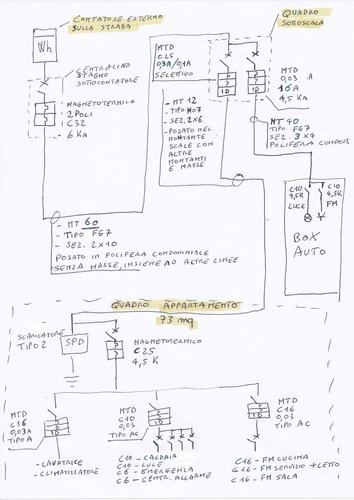 CONTATORE ESTERNO
SULLA STRADA
Wh
CENTRALINO
STAGNO
SOTTOCONTATORE
MAGNETOTERMICO
2 POLI
C32
6 KA
MTD
C25
0,3A/0,1A
SELETTIVO
QUADRO
SOTTOSCALA
MTD
0,03 A
16 A
4,5 KA
ID
ID
- MT 12
- TIPO N07
- SEZ. 2X6
- POSATO NEL
MONTANTE
SCALE CON
ALTRE
MONTANTI
E MASSE
MT 40
TIPO FG7
SEZ. 3 X 4
POLIFERA CONDOM.
C10
4,5K
LUCE
C10
4,5K
FM
BOX
AUTO
- MT 60
- TIPO FG7
- SEZ. 2X10
POSATO IN POLIFERA CONDOMINIALE
SENZA MASSE, INSIEME AD ALTRE LINEE
QUADRO APPARTAMENTO
73 mq
SCARICATORE
TIPO 2
SPD
MAGNETOTERMICO
C25
4,5 K
MTD
C16
0,03A
TIPO A
ID
- LAVATRICE
- CLIMATIZZATORE
MTD
C10
0,03
TIPO AC
ID
C10 - CALDAIA
C10 - LUCE
C6 - EMERGENZA
C6 - CENTR. ALLARME
MTD
C16
0,03
TIPO AC
ID
C16 - FM CUCINA
C16 - FM SERVIZIO + LETTO
C16 - FM SALA